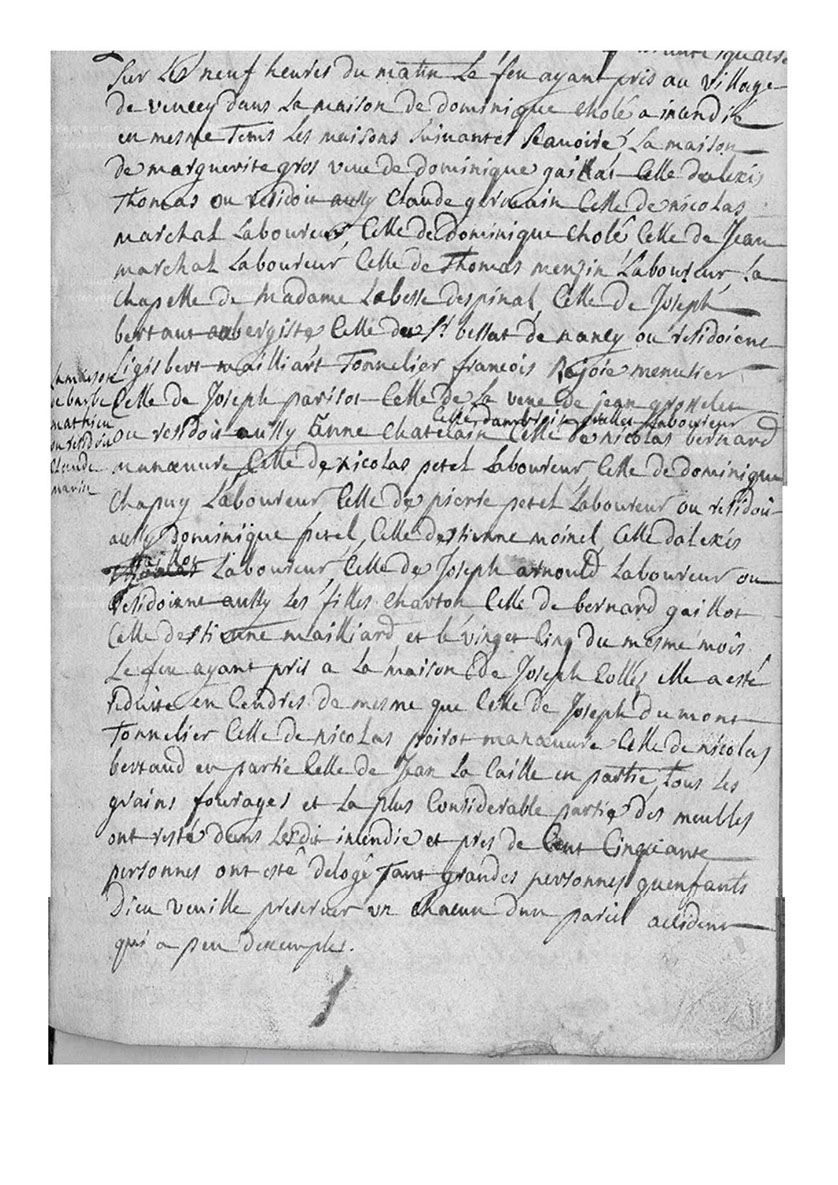 Sur les neuf heures du matin le feu ayant pris au village
de vincey dans la maison de dominique Cholé a incendié
en mesme tems les maisons suivantes scavoire la maison
de marguerite gros veuve de dominique gaillot Celle dalexis
Thomas ou residoit aussy Claude germain Celle de nicolas
marchal Laboureur, Celle de dominique Cholé Celle de Jean
marchal Laboureur, Celle de Thomas Laboureur, La
Chapelle de Madame Labesse despinal Celle de Joseph
bertaut aubergiste Celle du Sr bellot de nancy ou residoient
Ligisbert mailliart Tonnelier francois Rejoie menusier
La maison
de barbe
mathieu
ou residoit
Claude
marin
Celle de Joseph parisot Celle de La veuve de jean grosselin
Celle Laboureur
ou residoit aussy anne Chatelain Celle de nicolas bernard
manœuvre Celle de nicolas petel Laboureur Celle de dominique
Chapuy Laboureur Celle de pierre petel Laboureur ou residoit
aussy dominique petel, Celle destienne moinel, Celle dalexis
gaillot
Laboureur Celle de Joseph arnould Laboureur ou
residoienne aussy Les filles Charton Celle de bernard gaillot
Celle destienne mailliard et le vinget Cinq du mesme mois
Le feu ayant pris a La maison de Joseph Collés elle a esté
reduite en Cendres de mesme que Celle de Joseph dumont
Tonnelier Celle de nicolas poirot manœuvre Celle de nicolas
bertaud en partie Celle de Jean La Caille en partie, tous Les
grains fourages et La plus Considerable partie des meubles
ont resté dans Lesdit incendie et pres de Cent Cinquante
personnes ont esté delogé Tant grandes personnes quenfants
Dieu veuille preserver un chacun dun pareil accident
qui a peu dexemple.